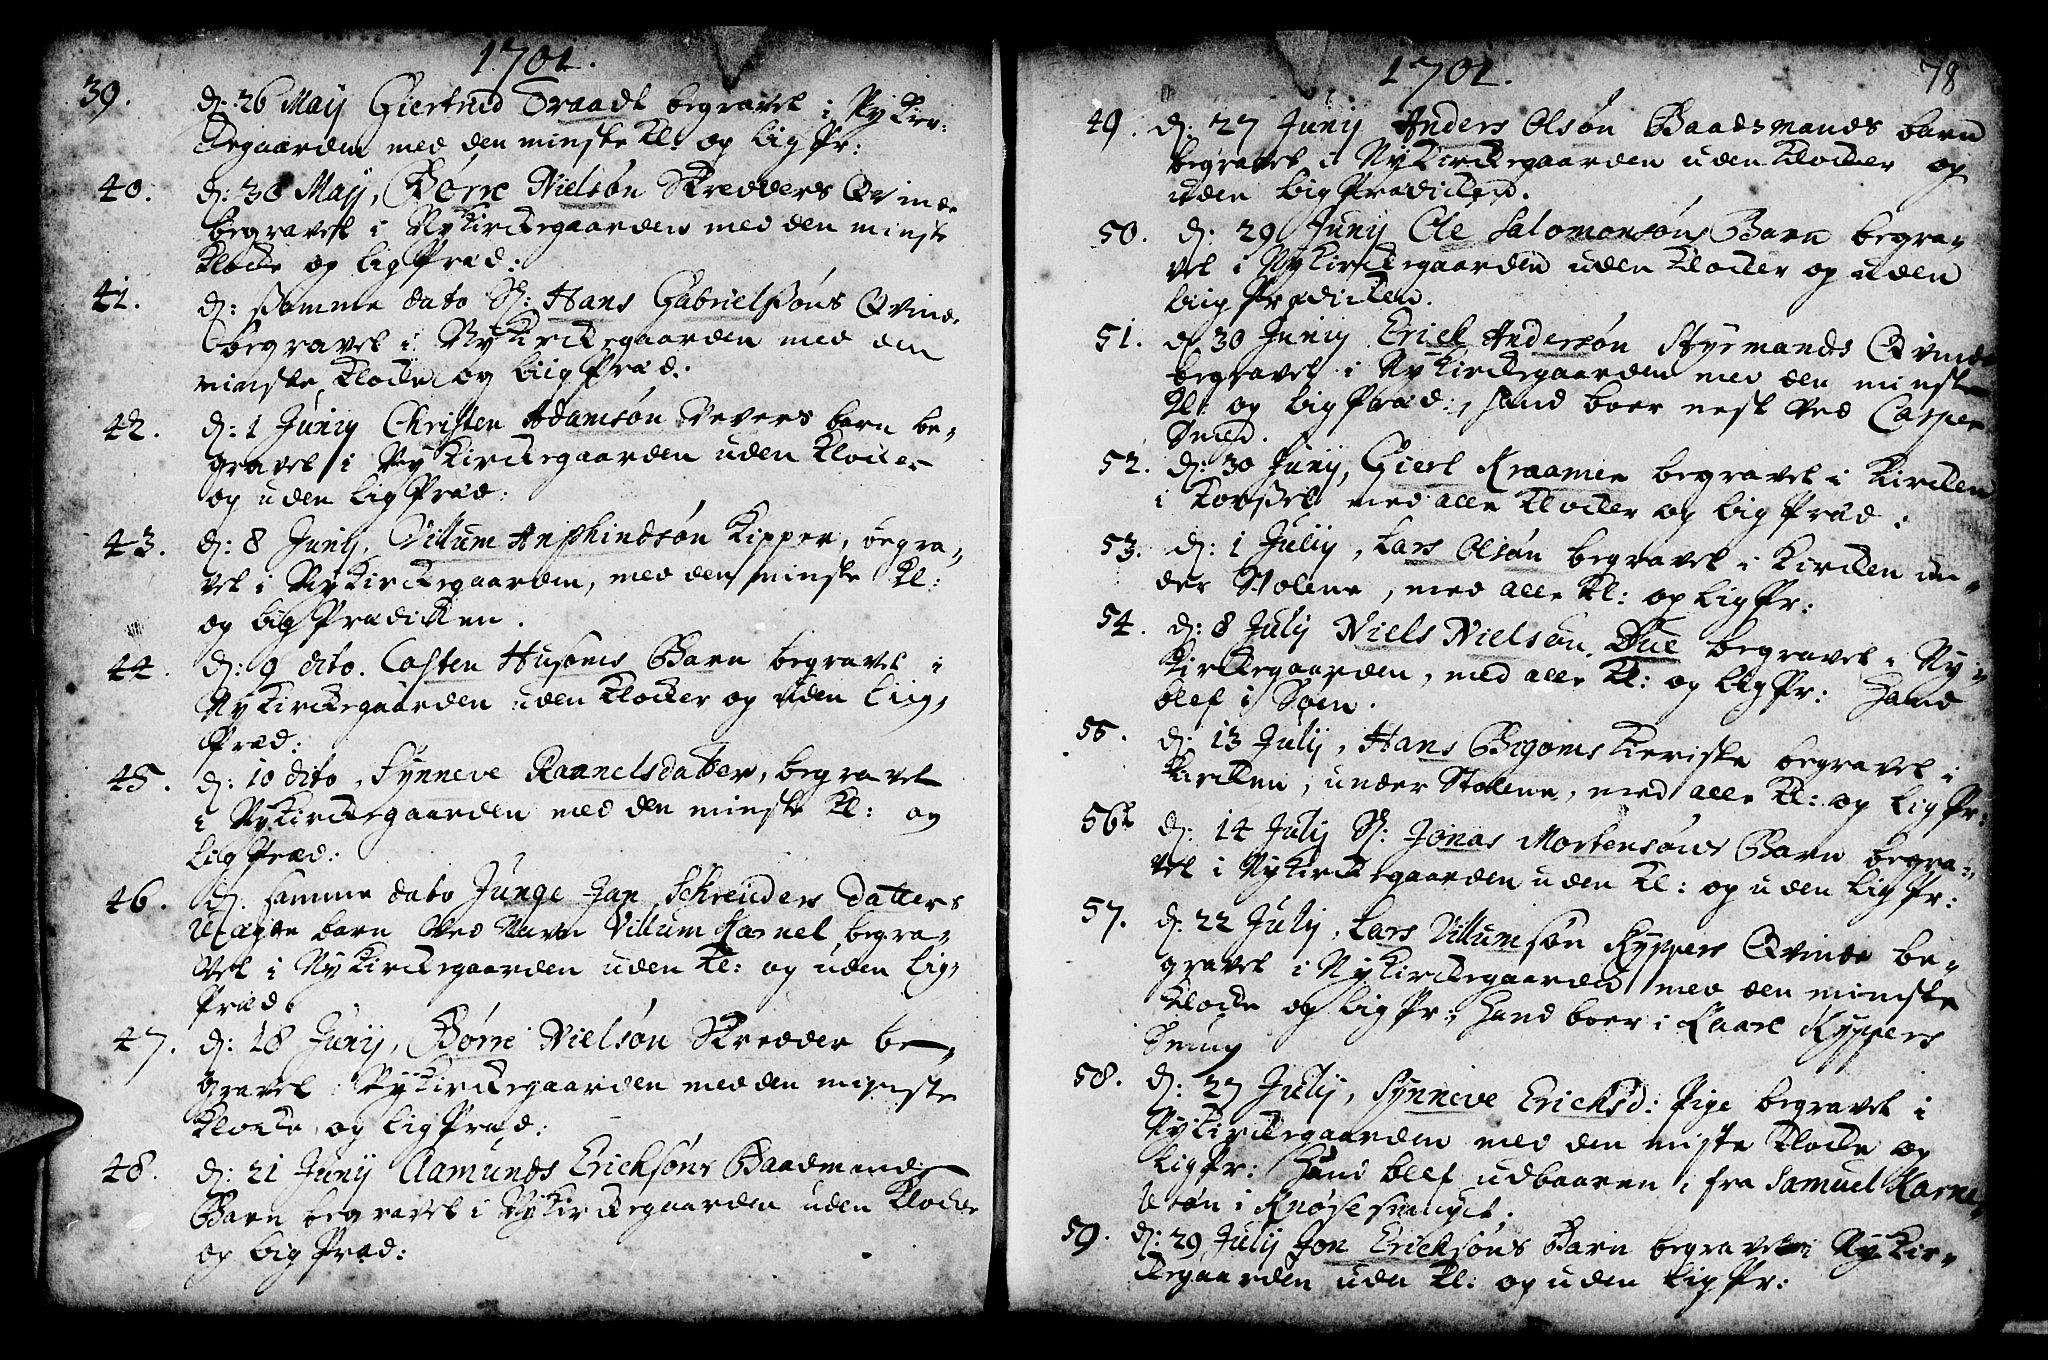 1701.
39. d: 26 Maij Giertrud Traadt begravet i Ny Kirc:
kegaarden med den minste Kl: og Lig Pr:
40. d: 30 Maij, Børre Nielsøn Skredders Qvinde
begravet i NyKirckegaarden med den minste
Klocke og Lig Præd:
41. d: samme dato Sl: Hans Gabrielsøns Qvinde
begravet i NyKirckegaarden med den
minste Klocke og Liig Præd:
42. d: 1 Junij Christen Adamsøn Vevers barn be-
gravet i Ny Kirckegaarden uden Klocke
og uden Lig Præd:
43. d: 8 Junij, Villum Ansthindsøn Kipper, begra-
vet i NyKirckegaarden, med den minste Kl:
og Lig Prædicken.
44. d: 9 dito. Casten Husoms Barn begravet i
NyKirckegaarden uden Klocker og uden Liig
Præd:
45. d: 10 dito, Synneve Rannelsdatter, begravet
i NyKirckegaarden med den minste Kl: og
Lig Præd:
46. d. samme dato Junge Jan Schreuders datters
Uægte barn ved Navn Villum Karnel, begra-
vet i NyKirckegaarden uden Kl: og uden Lig
Præd:
47. d: 18 Junij, Børre Nielsøn Skredder be-
gravet i NyKirckegaarden med den minste
Klocke og Lig Præd:
48. d: 21 Junij Aamunds Ericksøns Baadmands
Barn begravet i NyKirckegaarden uden Klocke
og Lig Præd:
1701. 78
49. d: 27 Junij Anders Olsøn Baadsmands barn
begravet i NyKirckegaarden uden Klocker og
uden Lig Prædicken.
50. d: 29 Junij Ole Salomonsøns Barn begra-
vet i NyKirckegaarden uden Klocker og uden
Liig Prædicken.
51. d. 30 Junij Erick Andersøn Styrmands Qvinde
begravet i NyKirckegaarden med den minste
Kl: og Lig Præd:, hand boer nest ved Casper
Smed.
52. d: 30 Junij, Giert Kraamer begravet i Kircken
i Korset med alle Klocker og Lig Præd:
53. d: 1 Julij, Lars Olsøn begravet i Kircken un-
der Stolene, med alle Kl: og Lig Pr:
54. d: 8 Julij Niels Nielsøn Due begravet i Ny
Kirckegaarden, med alle Kl: og Lig Pr: Hand
blef i Søen.
55. d: 13 Julij, Hans Bygoms Kieriste begravet i
Kircken, under Stolene, med alle Kl: og Lig Pr:
56. d: 14 Julij Sl: Jonas Mortensøns Barn begra-
vet i NyKirckegaarden uden Kl: og uden Lig Pr:
57. d. 22 Julij, Lars Villumsøn Kyppers Qvinde be-
gravet i NyKirckegaarden med den minste
Klocke og Lig Pr: Hand boer i Kaare Kyppers
Smug
58. d: 27 Julij, Synneve Ericksd: Pige begravet i
NyKirckegaarden med den miste Klocke og
Lig Pr: Hand blef udbaaren i fra Samuel Karne
i Knøsesmuget.
59. d: 29 Julij Jon Ericksøns Barn begravet i NyKir-
ckegaarden uden Kl: og uden Lig Pr: